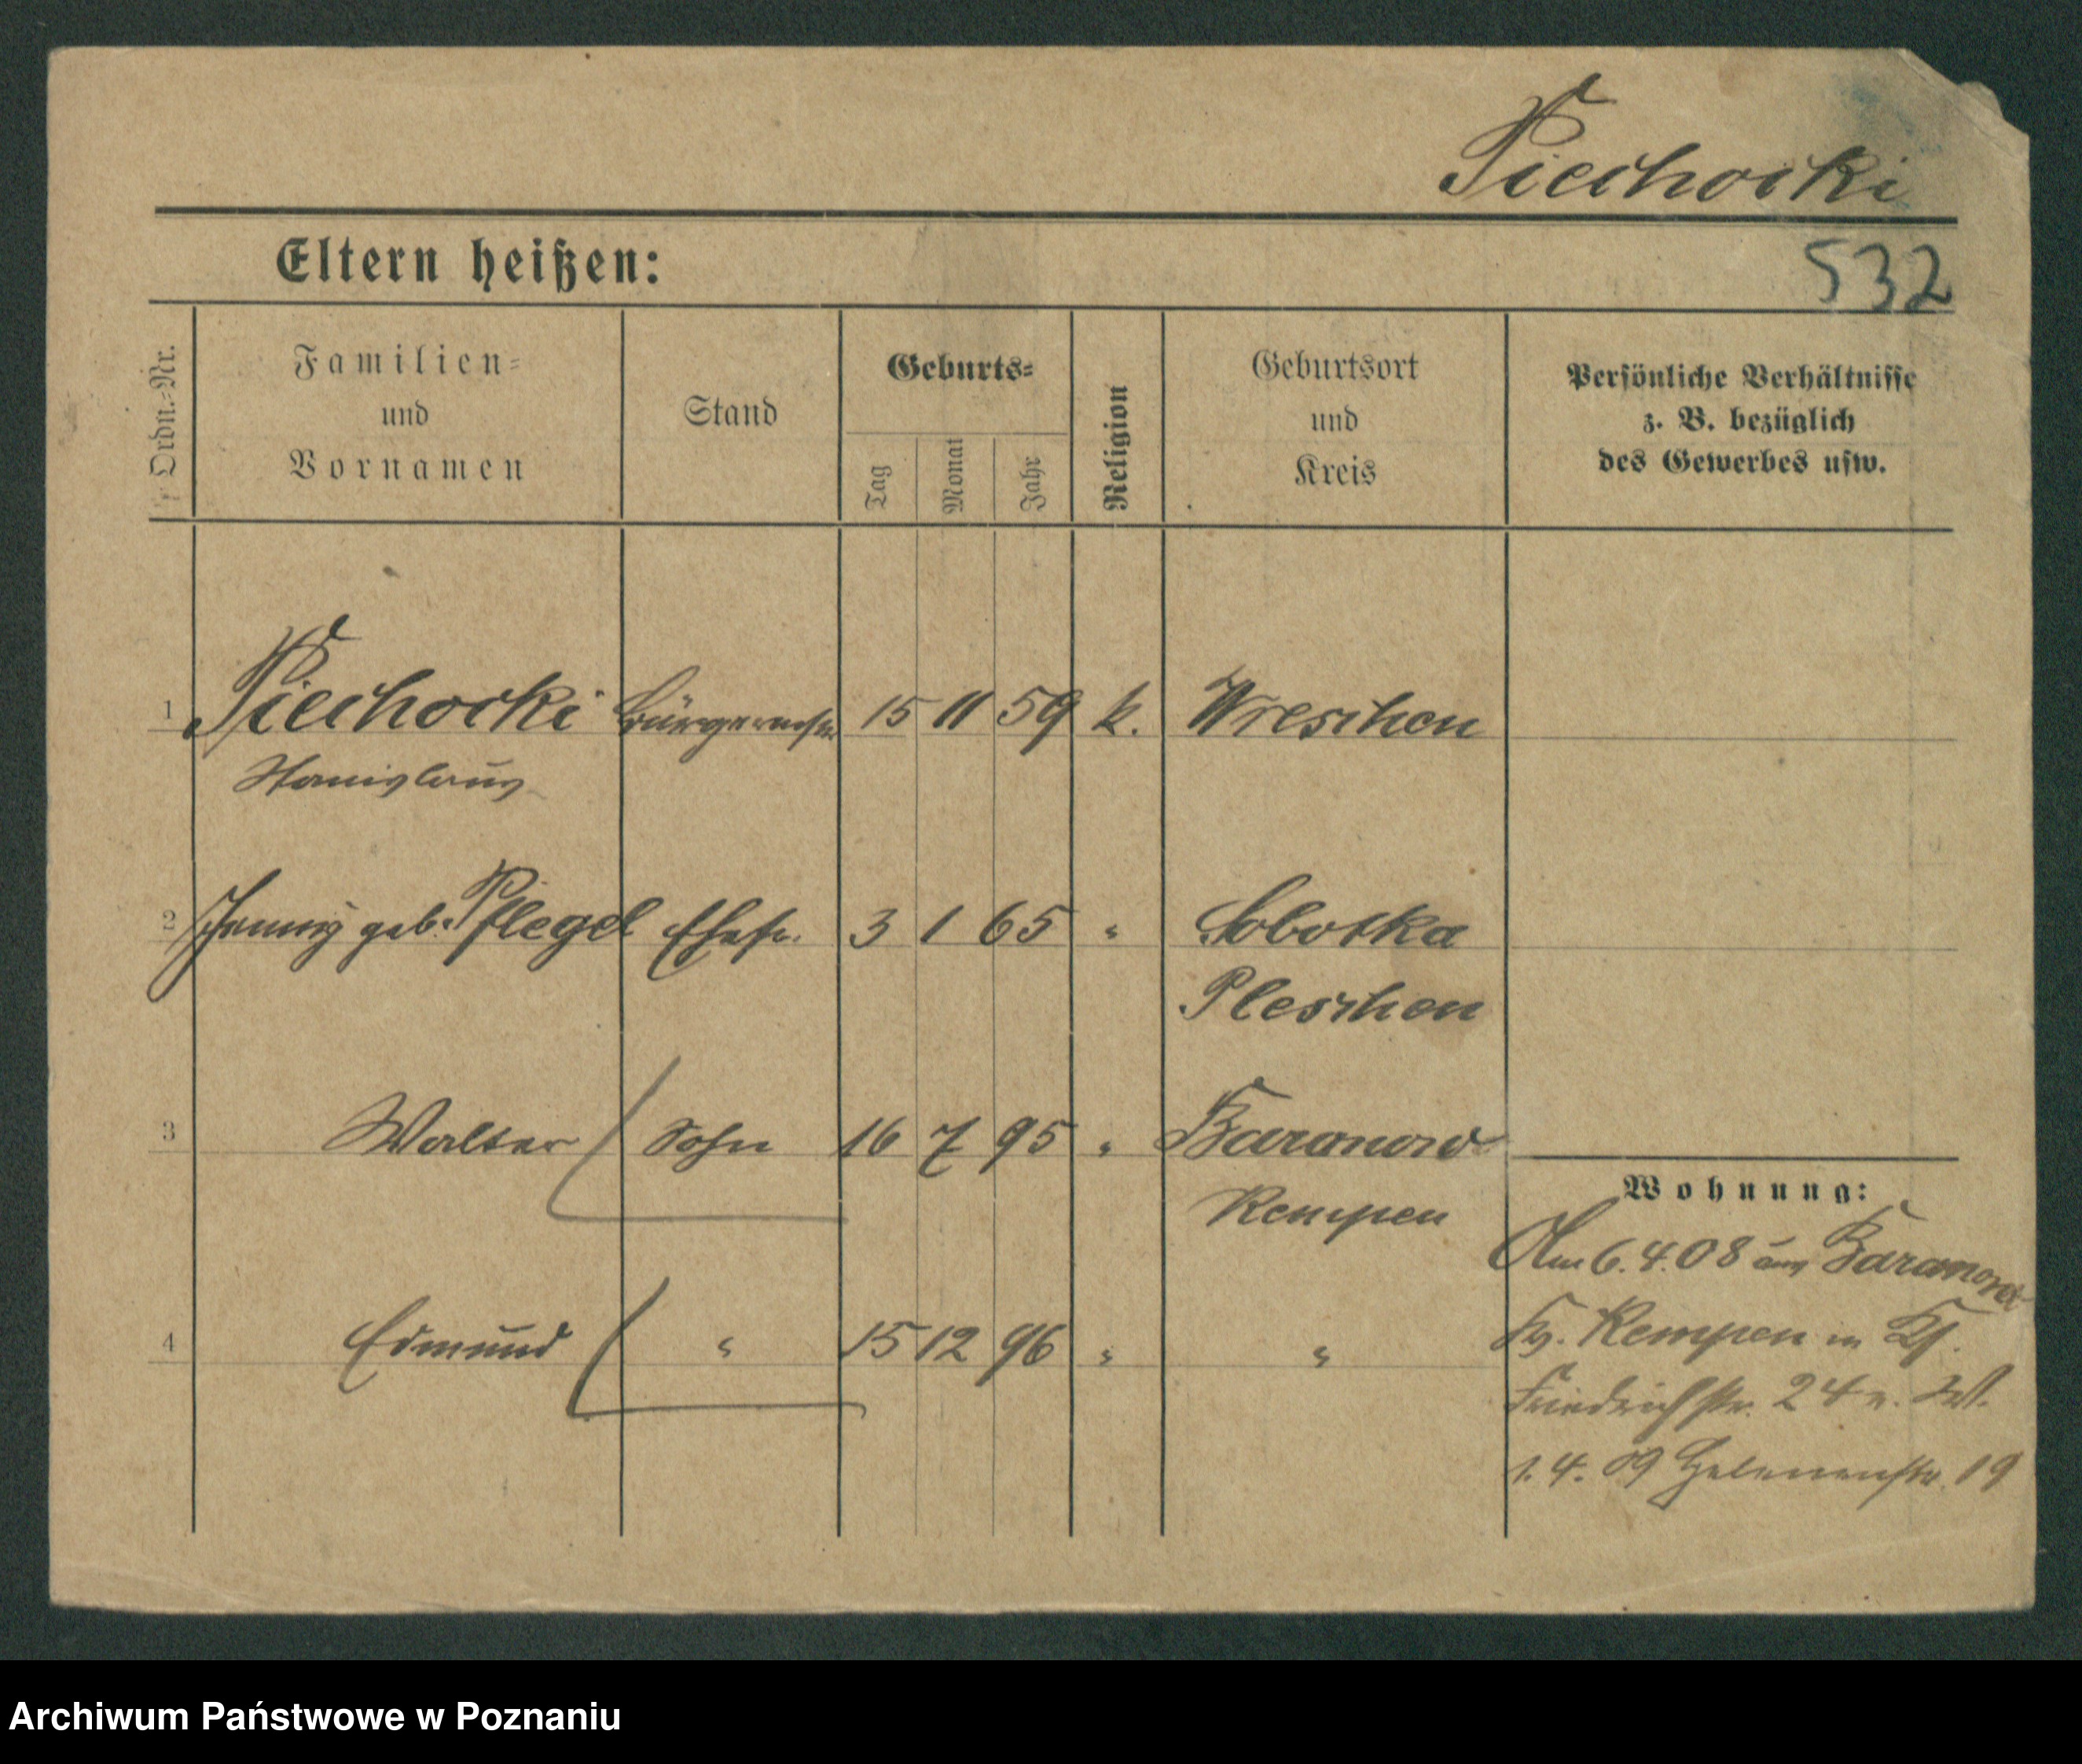 Piechocki
Eltern heißen:
532
Ordn.-Nr.
Familien-
und
Vornamen
Stand
Geburts-
Tag
Monat
Jahr
Religion
Geburtsort
und
Kreis
Persönliche Verhältnisse
z. B. bezüglich
des Gewerbes usw.
1 Piechocki 15 11 59 k. Wreschen
Stanislaus
2 geb. Pflegel Ehefr. 3 1 65 " Sobotka
Pleschen
3 Walter Sohn 16 7 95 " Baranow
Kempen
4 Edmund " 15 12 96 " "
Wohnung:
Am 6.4.08 aus Baranow
Kr. Kempen in
Friedrichstr. 24
1.4.09 Helenenstr. 19
Archiwum Państwowe w Poznaniu